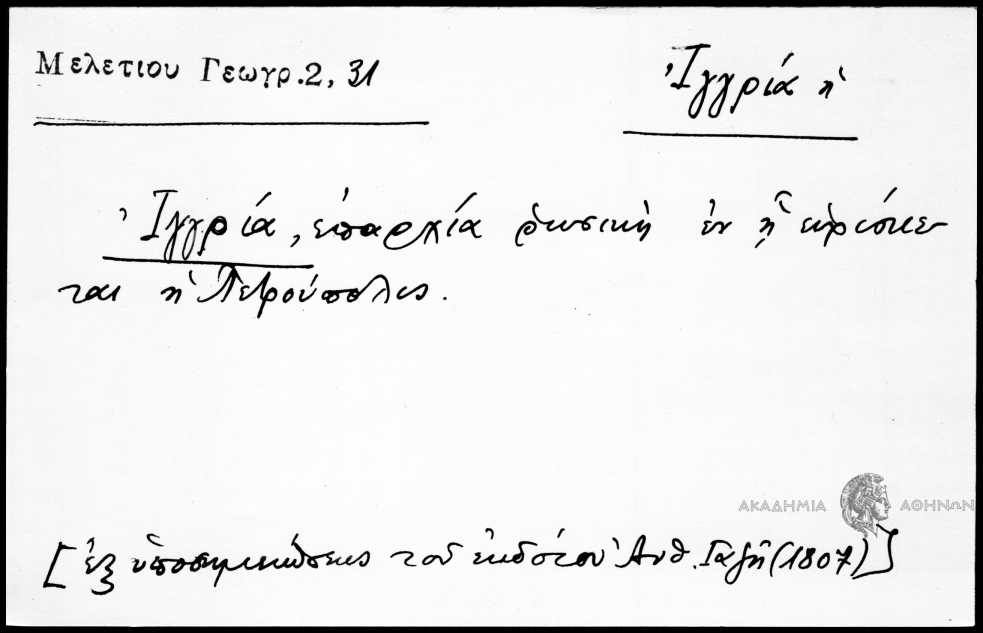 Μελετιου Γεωγρ.2, 31
Ἰγγρία ἡ
Ἰγγρία, ἐπαρχία ῥωσικὴ ἐν ᾗ εὑρίσκε-
ται ἡ Πετρούπολις.
ΑΚΑΔΗΜΙΑ ΑΘΗΝΩΝ
[ἐξ ὑποσημειώσεως τοῦ ἐκδότου Ἀνθ. Γαζῆ (1807)]